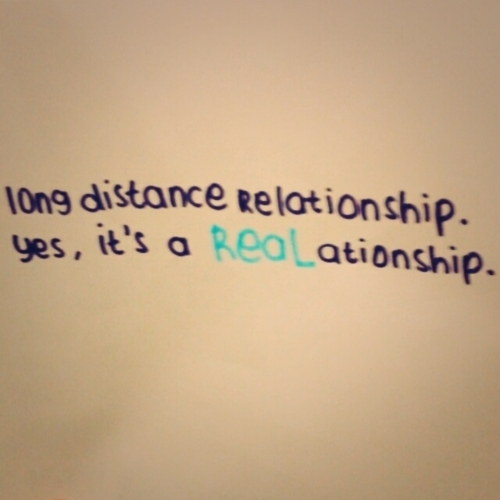 long distance Relationship.
yes, it's a ReaLationship.